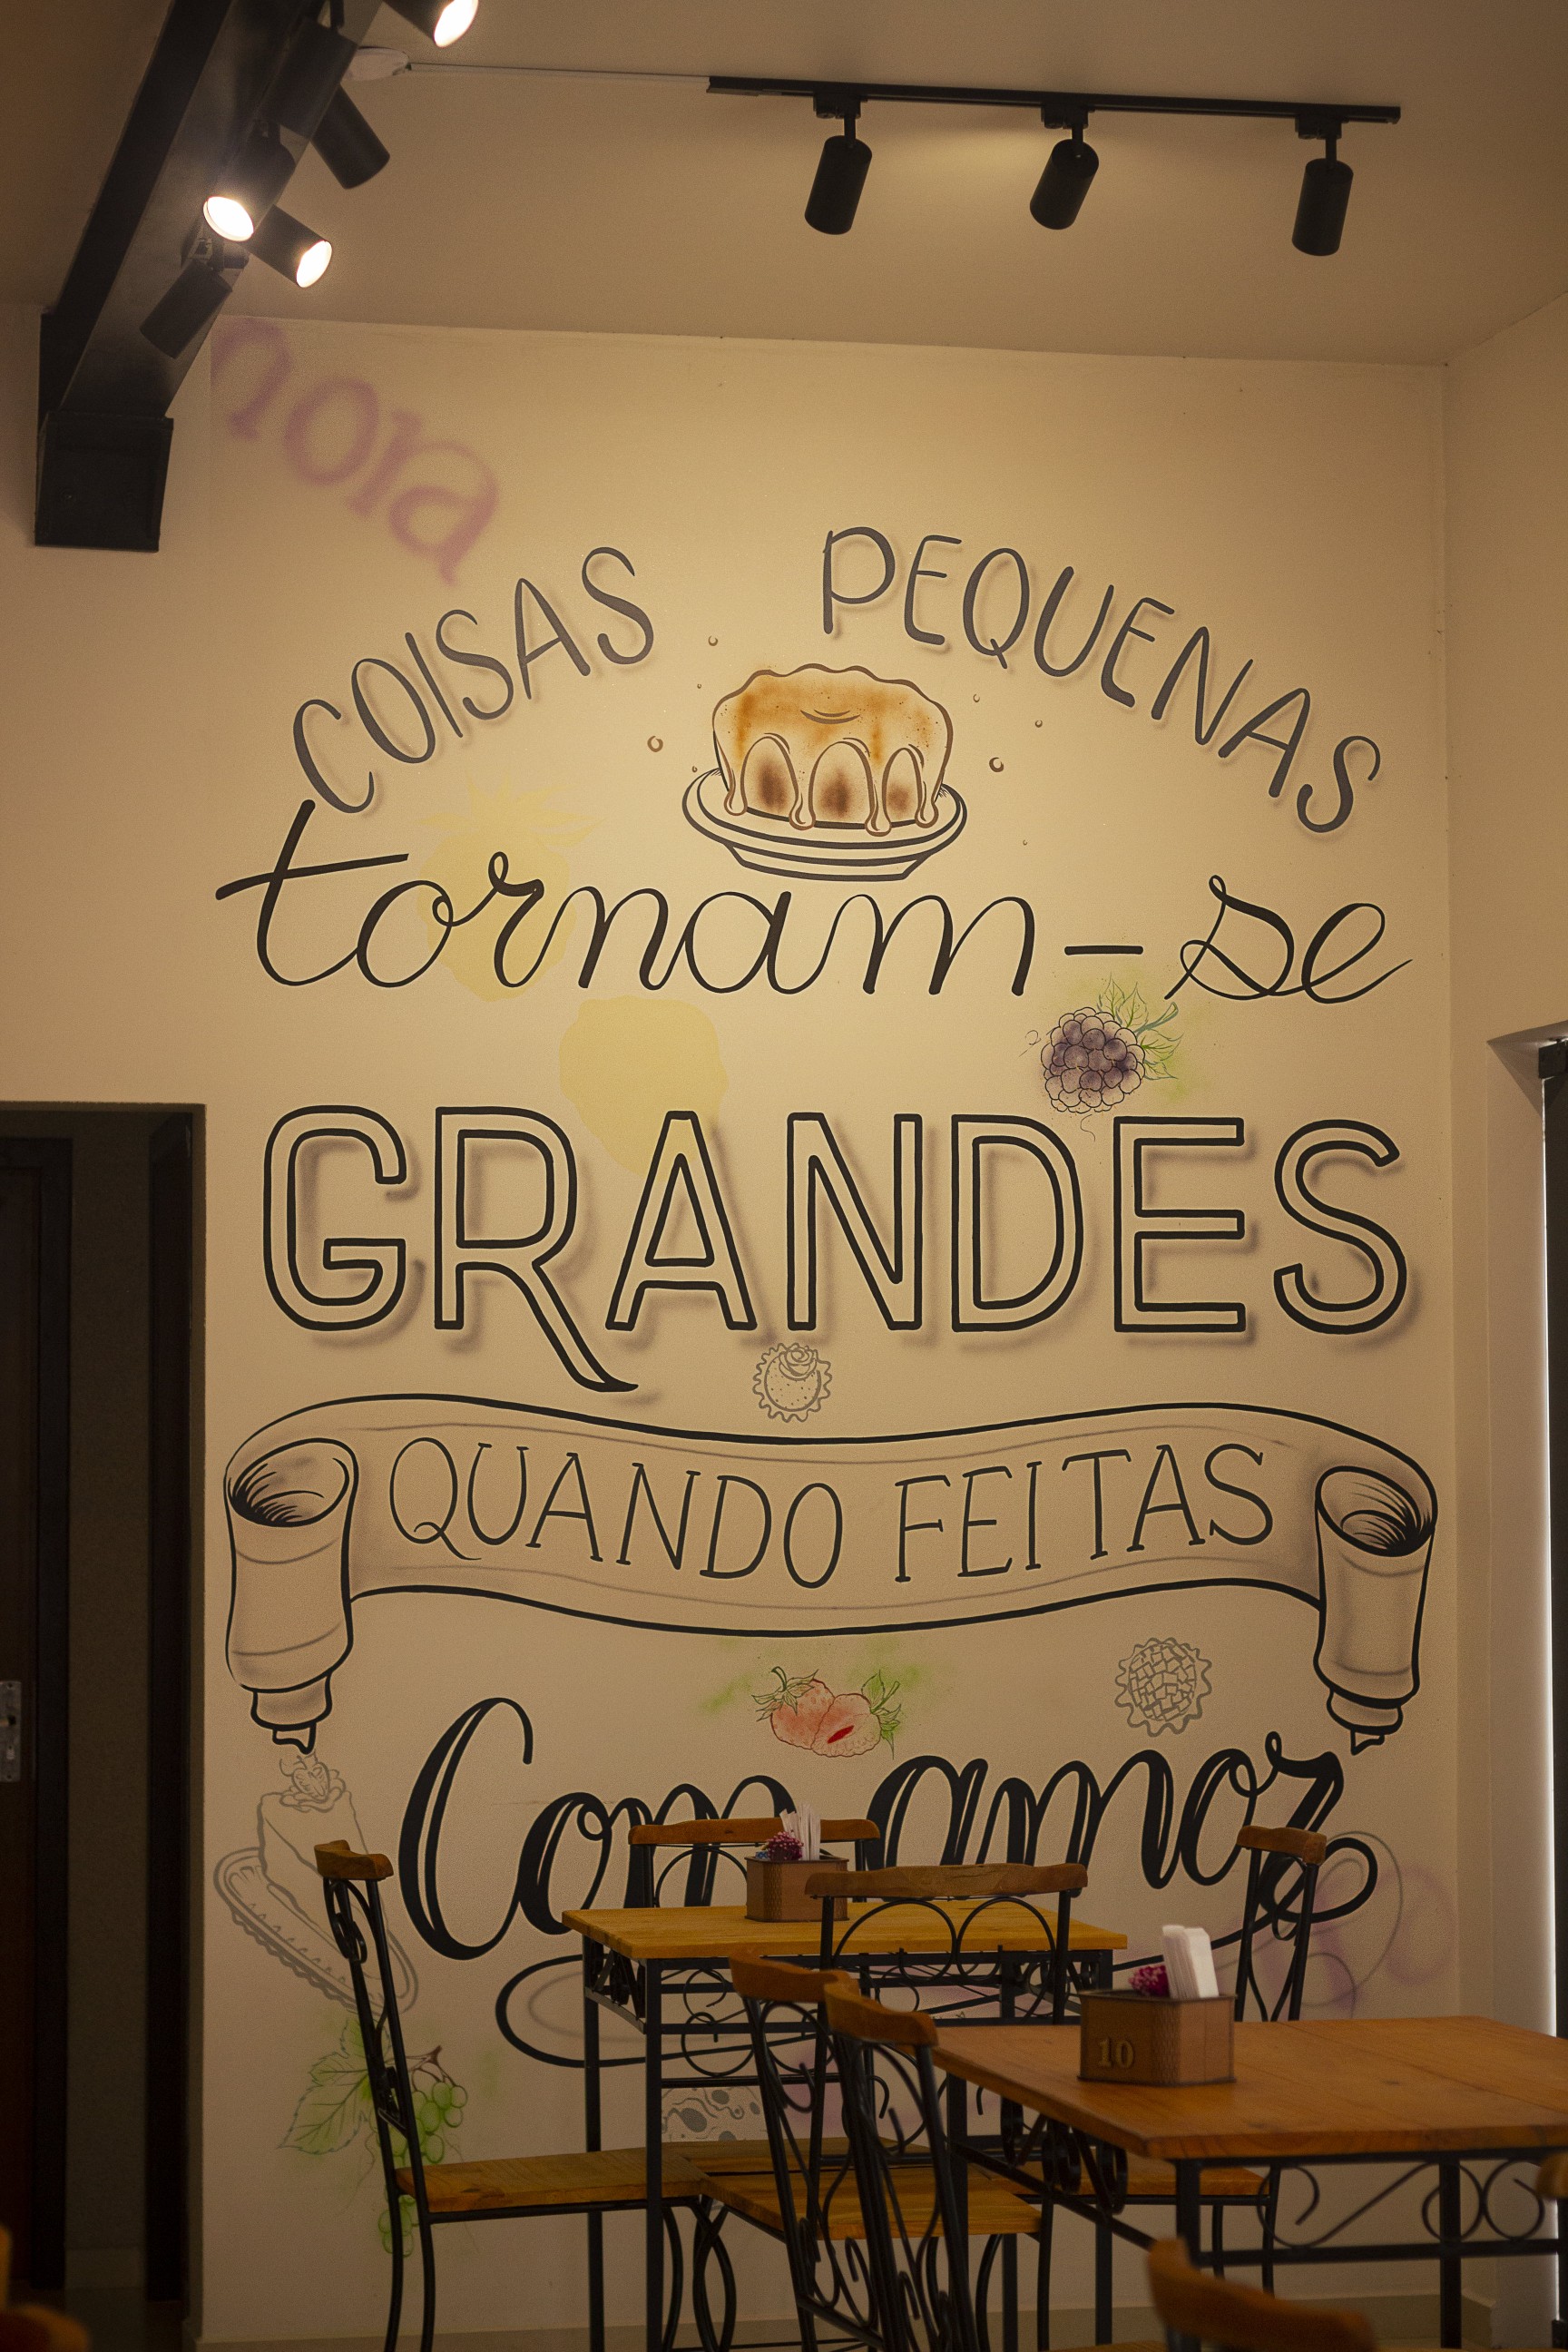 nora
COISAS PEQUENAS
tornam-se
GRANDES
QUANDO FEITAS
Com amor
10